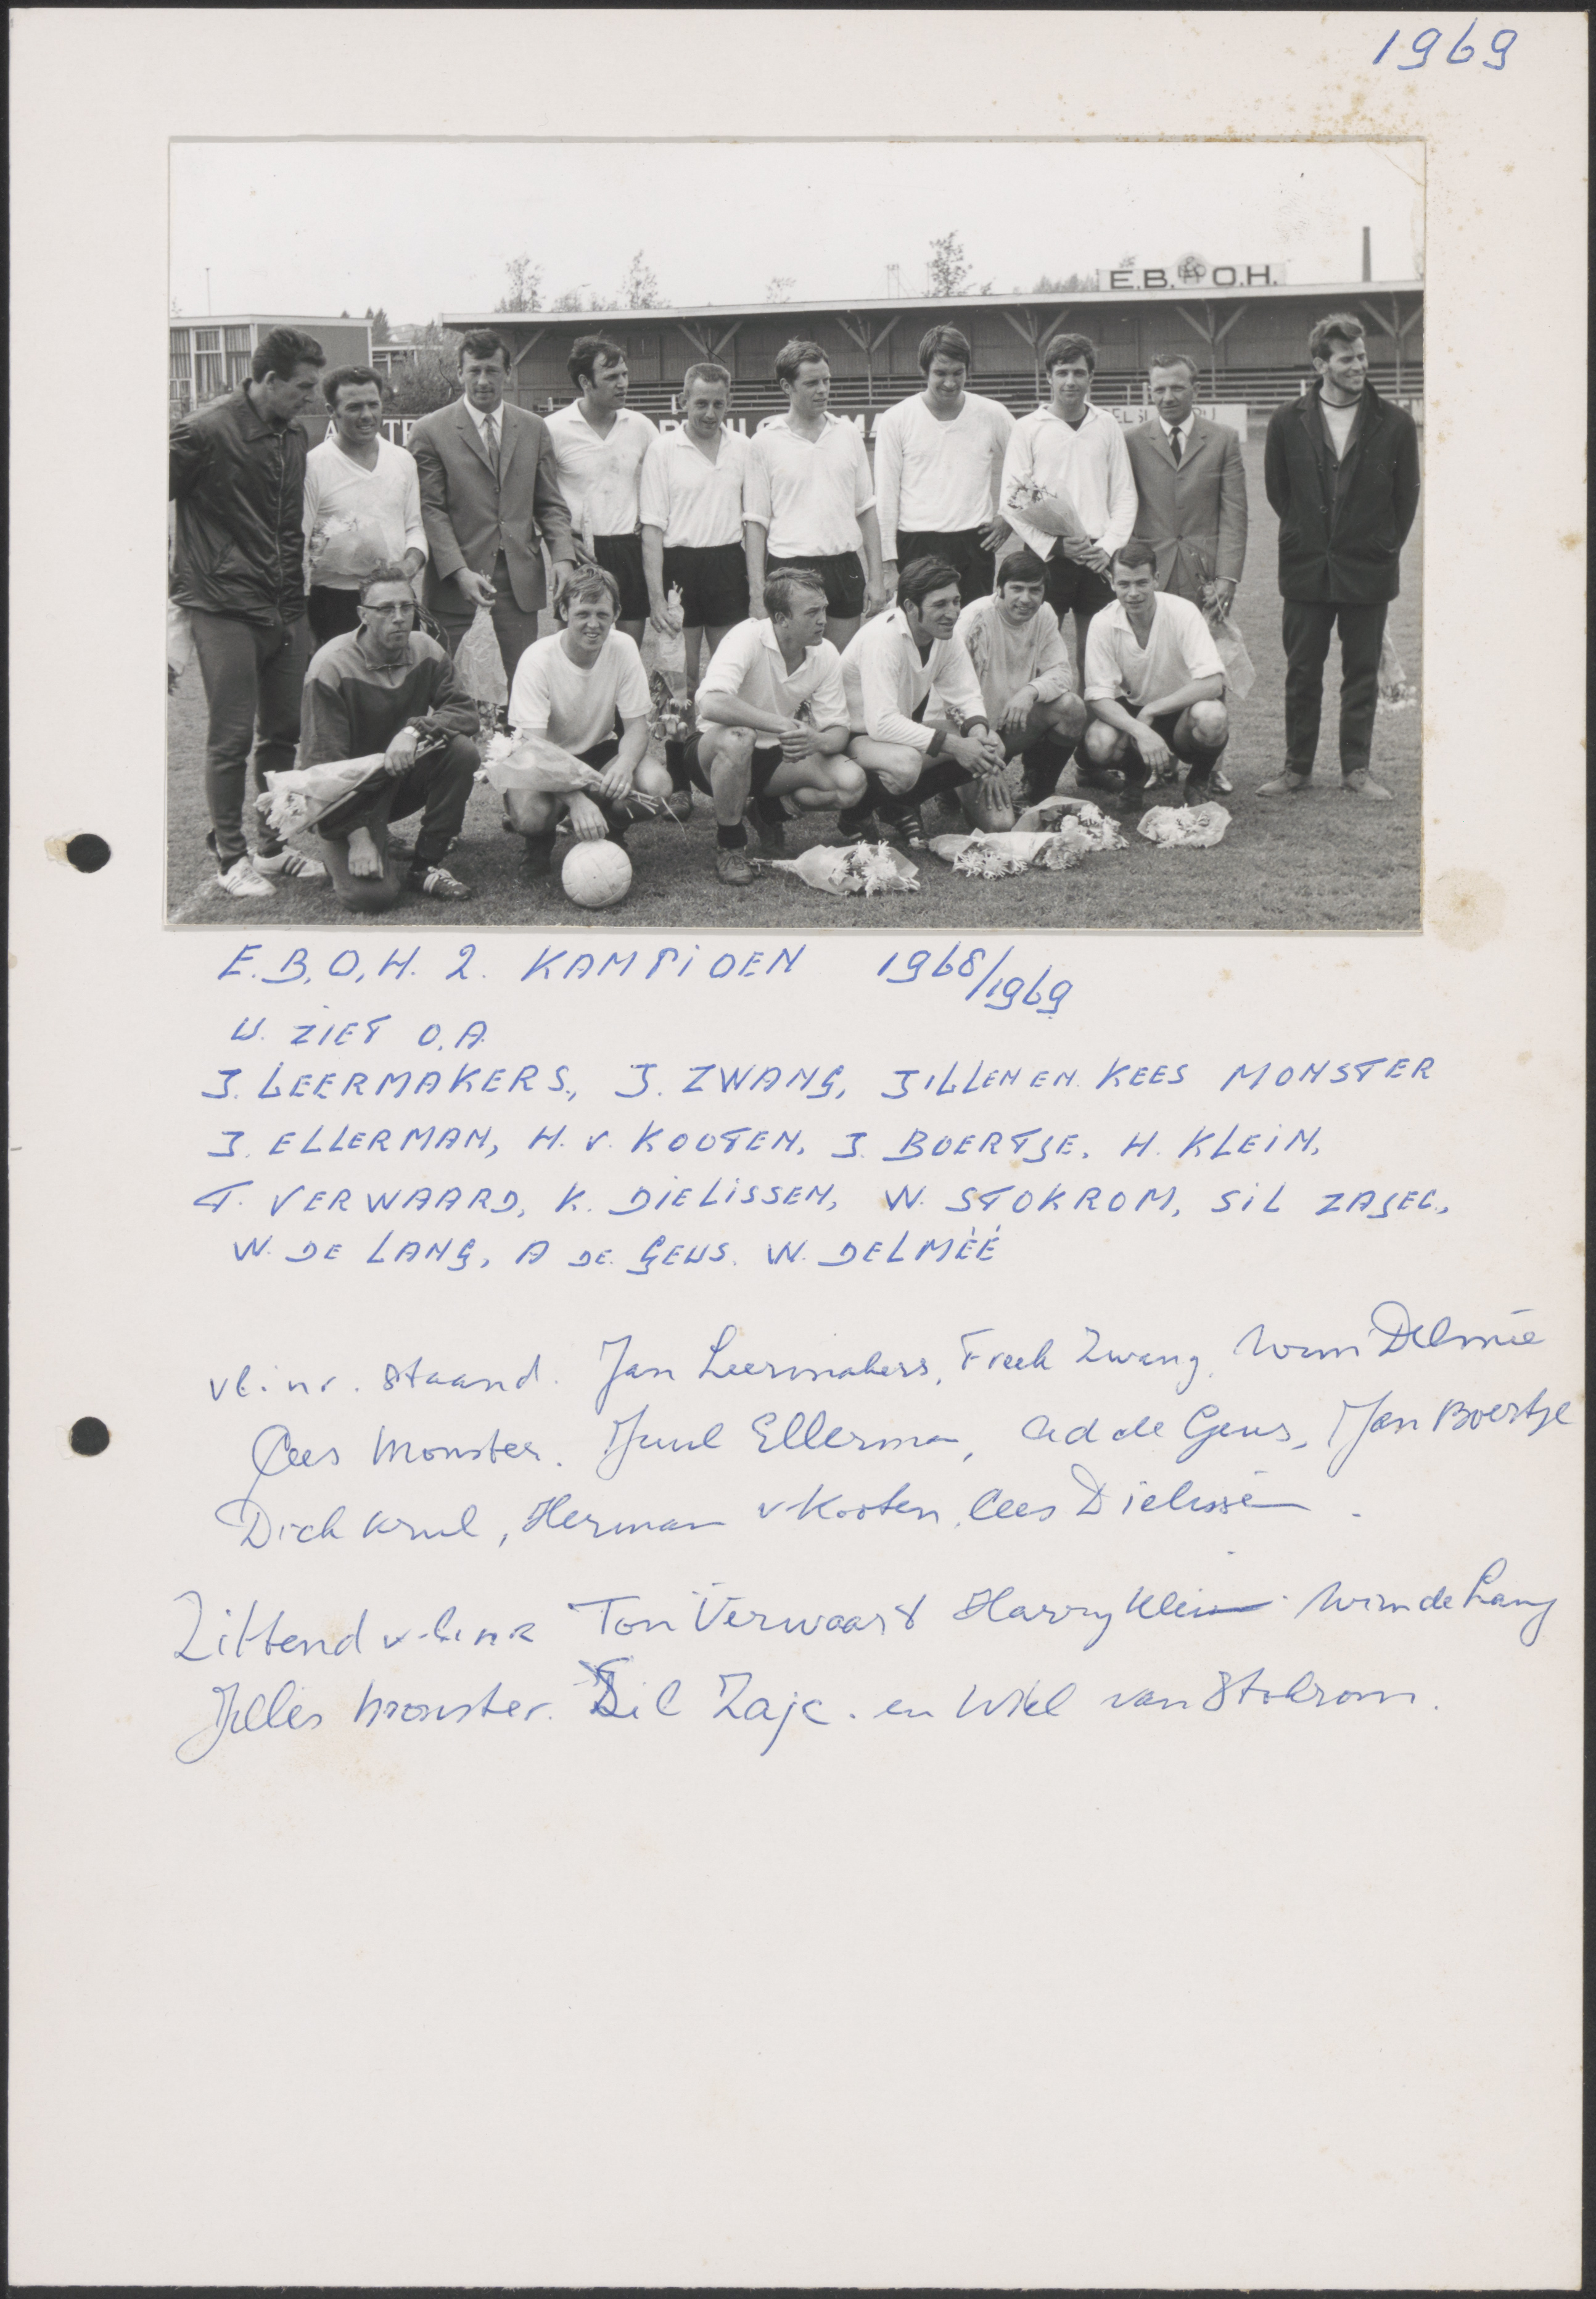 1969
E.B. O.H.
E.B.O.H. 2. KAMPIOEN 1968/1969
W. ZIET O.A.
J. LEERMAKERS, J. ZWANG, JILLEN EN KEES MONSTER
J. ELLERMAN, H. v. KOOTEN, J. BOERTJE, H. KLEIN,
T. VERWAARD, K. DIELISSEN, W. STOKROM, SIL ZAJEC,
W. DE LANG, A DE GEUS. W. DELMÈÉ
vl.nr. staand. Jan Leermakers, Freek Zwang, Wim Delmée
Cees Monster. Juul Ellerman, Ad de Geus, Jan Boertje
Dick Krul, Herman v Kooten, Cees Dielissen.
Zittend v.l.n.r Ton Verwaard Harry Klein. Wim de Lang
Jilles Monster. Sil Zajc. en Wiel van Stokrom.